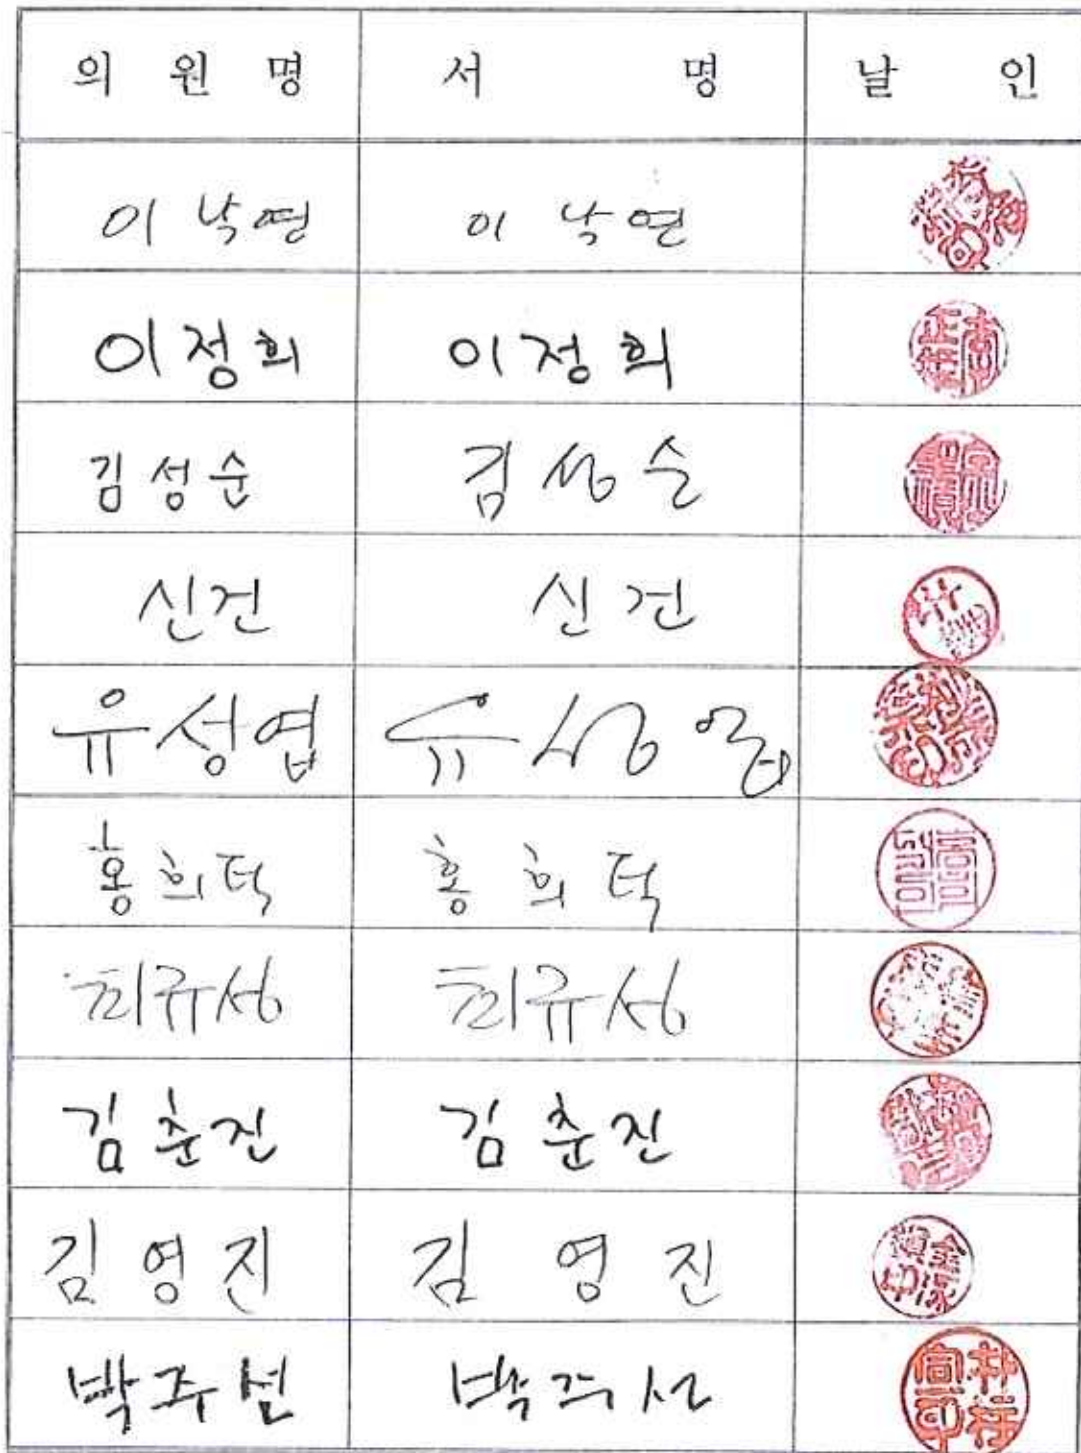 의 원 명 서 명 날 인
이낙연 이낙연
이정희 이정희
김성순 김성순
신건 신건
유성엽 유성엽
홍희덕 홍희덕
최규성 최규성
김춘진 김춘진
김영진 김영진
박주선 박주선